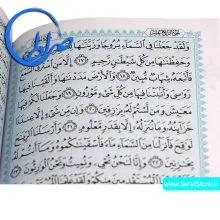 صراط
وَلَقَدْ جَعَلْنَا فِي السَّمَاءِ بُرُوجًا وَزَيَّنَّاهَا
وَحَفِظْنَاهَا مِن كُلِّ شَيْطَانٍ رَّجِيمٍ ﴿١٧﴾ إِلَّا مَنِ اسْتَرَقَ
فَأَتْبَعَهُ شِهَابٌ مُّبِينٌ ﴿١٨﴾ وَالْأَرْضَ مَدَدْنَاهَا وَأَلْقَيْنَا فِيهَا
رَوَاسِيَ وَأَنبَتْنَا فِيهَا مِن كُلِّ شَيْءٍ مَّوْزُونٍ ﴿١٩﴾ وَجَعَلْنَا لَكُمْ فِيهَا
مَعَايِشَ وَمَن لَّسْتُمْ لَهُ بِرَازِقِينَ ﴿٢٠﴾ وَإِن مِّن شَيْءٍ إِلَّا عِندَنَا
خَزَائِنُهُ وَمَا نُنَزِّلُهُ إِلَّا بِقَدَرٍ مَّعْلُومٍ ﴿٢١﴾ وَأَرْسَلْنَا
لَوَاقِحَ فَأَنزَلْنَا مِنَ السَّمَاءِ مَاءً فَأَسْقَيْنَاكُمُوهُ
بِخَازِنِينَ ﴿٢٢﴾ وَإِنَّا لَنَحْنُ نُحْيِي وَنُمِيتُ وَنَحْنُ الْوَارِثُونَ
www.SeratStore.ir